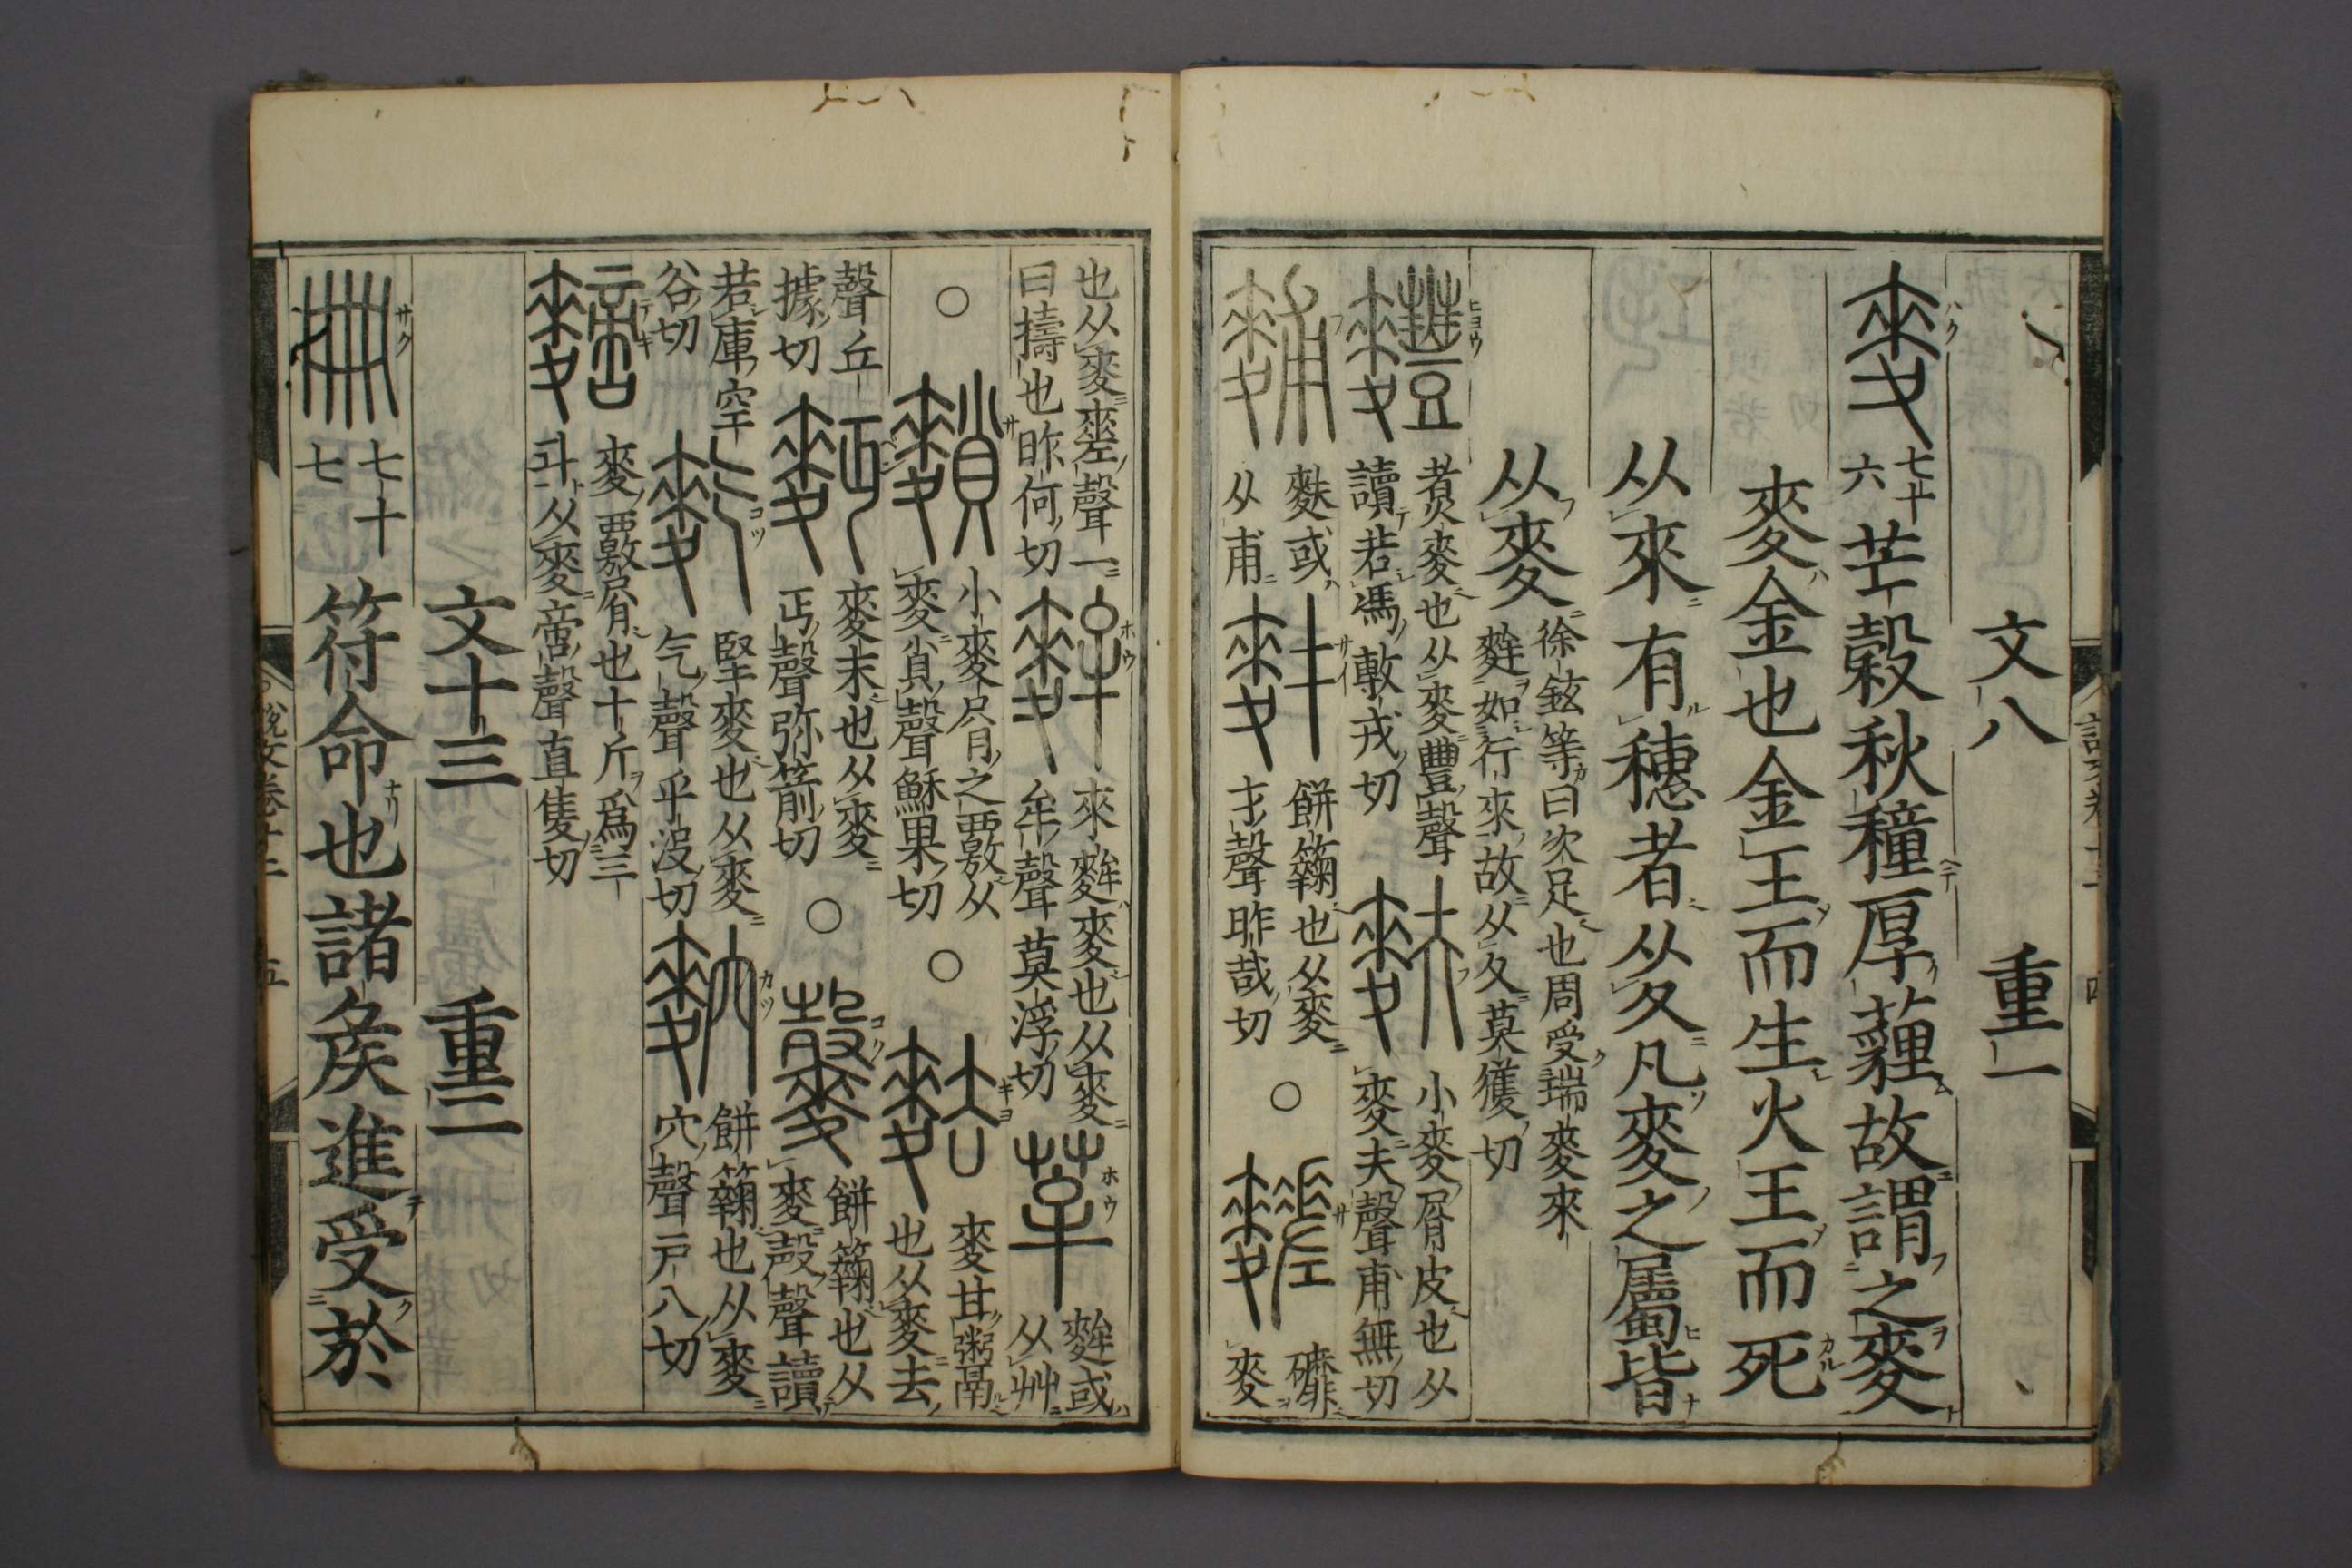 文八 重一
麥 七十六 芒穀秋穜厚薶故謂之麥
麥金也金王而生火王而死
从來有穗者从夊凡麥之屬皆
从麥 徐鉉等曰夊足也周受瑞麥來
麰如行來故从夊莫獲切
麷 煮麥也从麥豐聲
讀若馮敷戎切
麩 小麥屑皮也从
麥夫聲甫無切
麱 麩或
从甫
餅䴬也从麥
才聲昨哉切
○
麥
也从麥 聲一
曰擣也昨何切
麰 來麰麥也从麥
牟聲莫浮切
麰或
从艸
○
小麥屑之覈从
麥𧴪聲穌果切
○
麮 麥甘鬻
也从麥去
聲丘
據切
麪 麥末也从麥
丏聲弥箭切
○
餅䴬也从
麥㱿聲讀
若庫空
谷切
麧 堅麥也从麥
气聲乎没切
餅䴬也从麥
穴聲戸八切
麥覈屑也十斤爲三
斗从麥啻聲直隻切
文十三 重二
冊 七十七 符命也諸矦進受於
說文卷十二 五